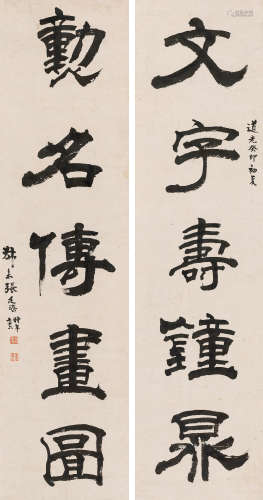 文字壽鐘鼎
道光癸卯初夏
勳名傳畫圖
叔未張廷濟